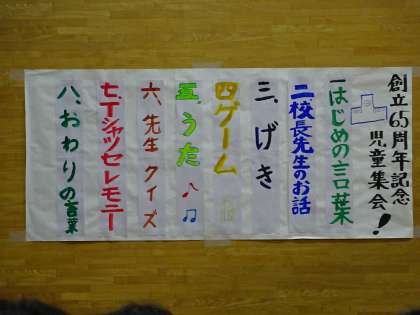 創立65周年記念
児童集会!
一はじめの言葉
二、校長先生のお話
三、げき
四ゲーム
五、うた
六、先生クイズ
七、Tシャツセレモニー
八、おわりの言葉